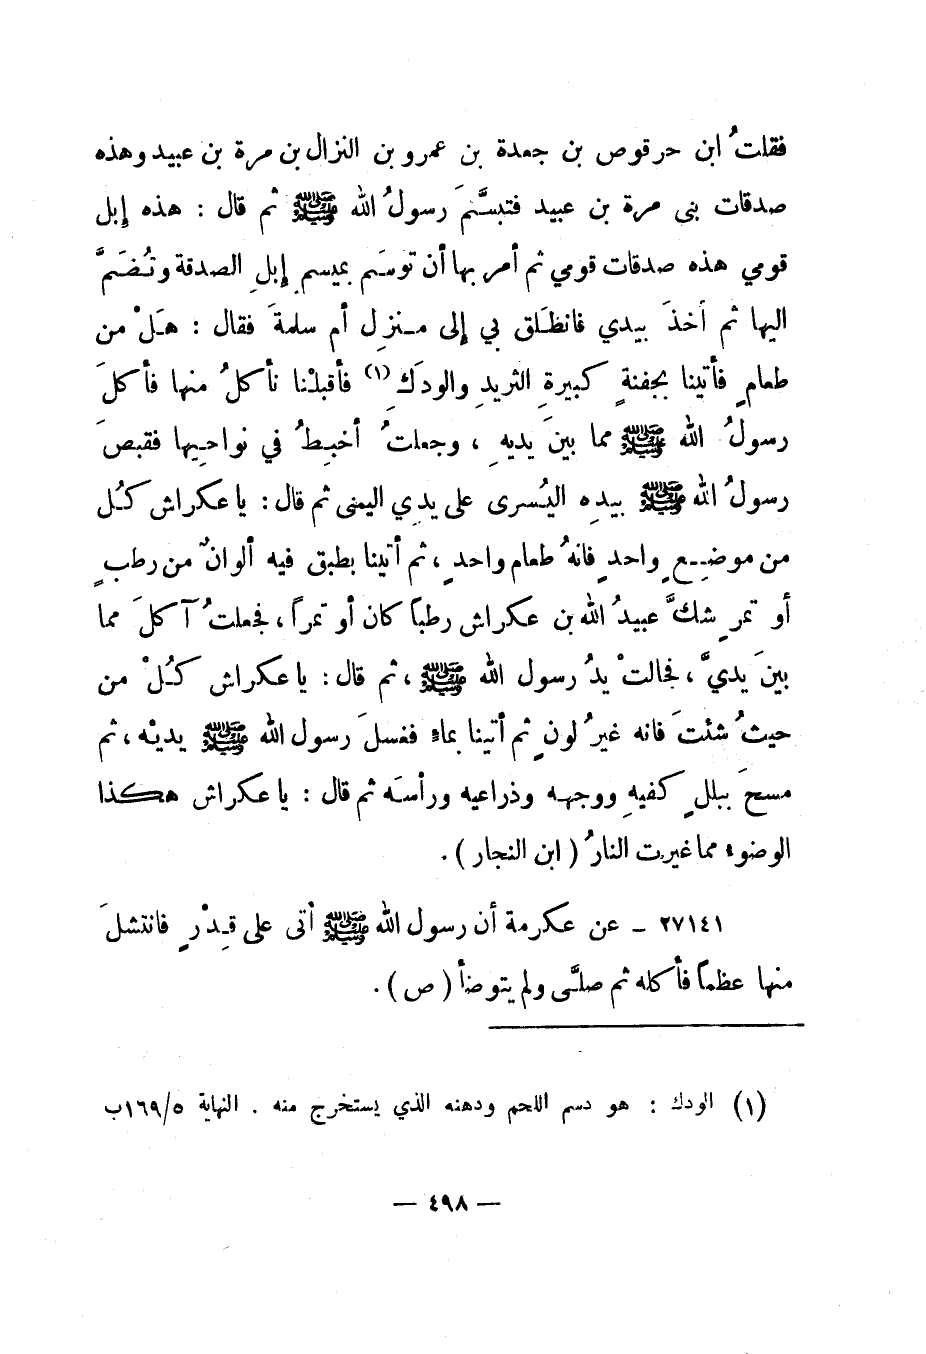 فقلتُ ابن حرقوص بن جعدة بن عمرو بن النزال بن مرة بن عبيد وهذه
صدقات بنى مرة بن عبيد فتبسَّمَ رسولُ الله ﷺ ثم قال : هذه إبل
قومي هذه صدقات قومي ثم أمر بها أن توسَم بميسمِ إبلِ الصدقة وتُضَمَّ
اليها ثم أخذَ بيدي فانطلَق بي إلى منزلِ أم سلمةَ فقال : هَلْ من
طعامٍ فأتينا بجفنةٍ كبيرةِ الثريدِ والودَكِ (١) فأقبلْنا نأكلُ منها فأكلَ
رسولُ الله ﷺ مما بينَ يديهِ ، وجعلتُ أخبِطُ في نواحيها فقبصَ
رسولُ الله ﷺ بيدِه اليُسرى على يدِي اليمنى ثم قال : يا عكراش كُل
من موضِعٍ واحدٍ فانهُ طعام واحدٍ ، ثم أتينا بطبق فيه ألوانٌ من رطبٍ
أو تمرٍ شكَّ عبيدُ الله بن عكراش رطباً كان أو تمراً ، فجعلتُ آكلَ مما
بينَ يديَّ ، فجالتْ يدُ رسول الله ﷺ ، ثم قال : يا عكراش كُلْ من
حيثُ شئتَ فانه غيرُ لونٍ ثم أتينا بماءٍ فغسلَ رسول الله ﷺ يديْه ، ثم
مسحَ ببللٍ كفيهِ ووجهه وذراعيه ورأسَه ثم قال : يا عكراش هكذا
الوضوء مما غيرت النارُ ( ابن النجار ) .
٢٧١٤١ - عن عكرمة أن رسول الله ﷺ أتى على قِدْرٍ فانتشلَ
منها عظماً فأكله ثم صلَّى ولم يتوضأ ( ص ) .
(١) الودك : هو دسم اللحم ودهنه الذي يستخرج منه . النهاية ١٦٩/٥ ب
— ٤٩٨ —